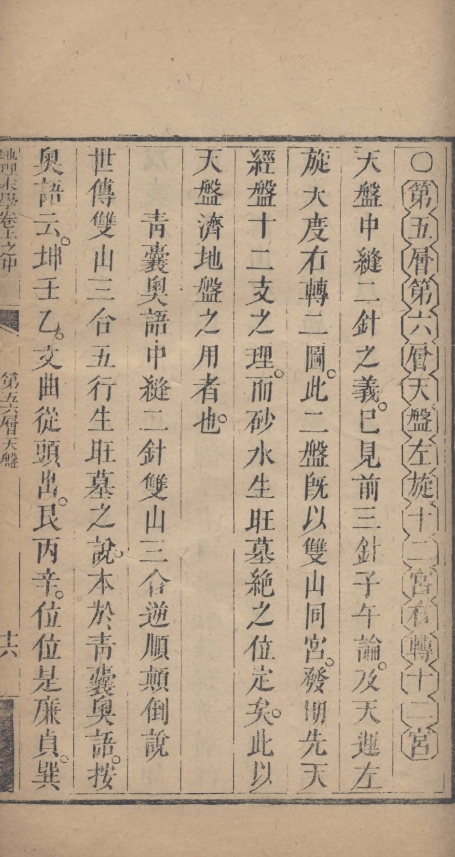 ○第五層第六層天盤左旋十二宮右轉十二宮
天盤中縫二針之義。已見前三針子午論。及天運左
旋大度右轉二圖。此二盤旣以雙山同宮。發明先天
經盤十二支之理。而砂水生旺墓絶之位定矣。此以
天盤濟地盤之用者也。
靑囊奧語中縫二針雙山三合逆順顛倒說
世傳雙山三合五行生旺墓之說。本於靑囊奧語。按
奧語云。坤壬乙。文曲從頭出。艮丙辛。位位是廉貞。巽
地理末學卷上之中
第五六層天盤
十六